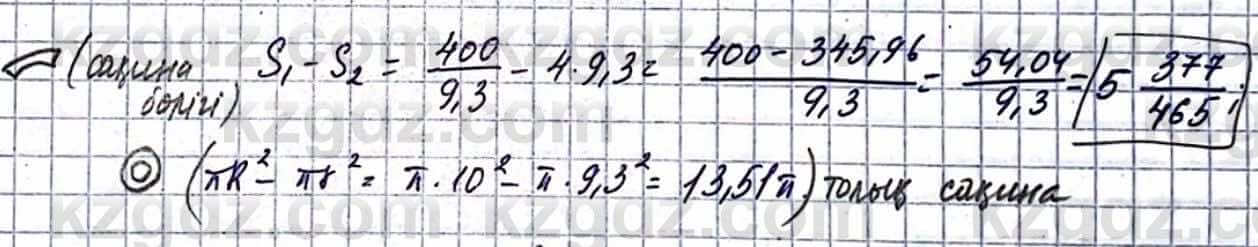 (сақина бөлігі) S₁ - S₂ = 400/9,3 - 4·9,3 = (400 - 345,96)/9,3 = 54,04/9,3 = 5 377/465;
(πR² - πr² = π·10² - π·9,3² = 13,51π) толық сақина